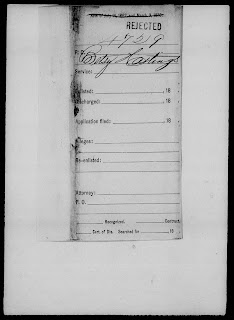 REJECTED
Betsy Hastings
Service:
Enlisted: 18
Discharged: 18
Application filed: 18
Alleges:
Re-enlisted:
Attorney:
P. O.
Recognized. Contract.
Cert. of Dis. Searched for 18